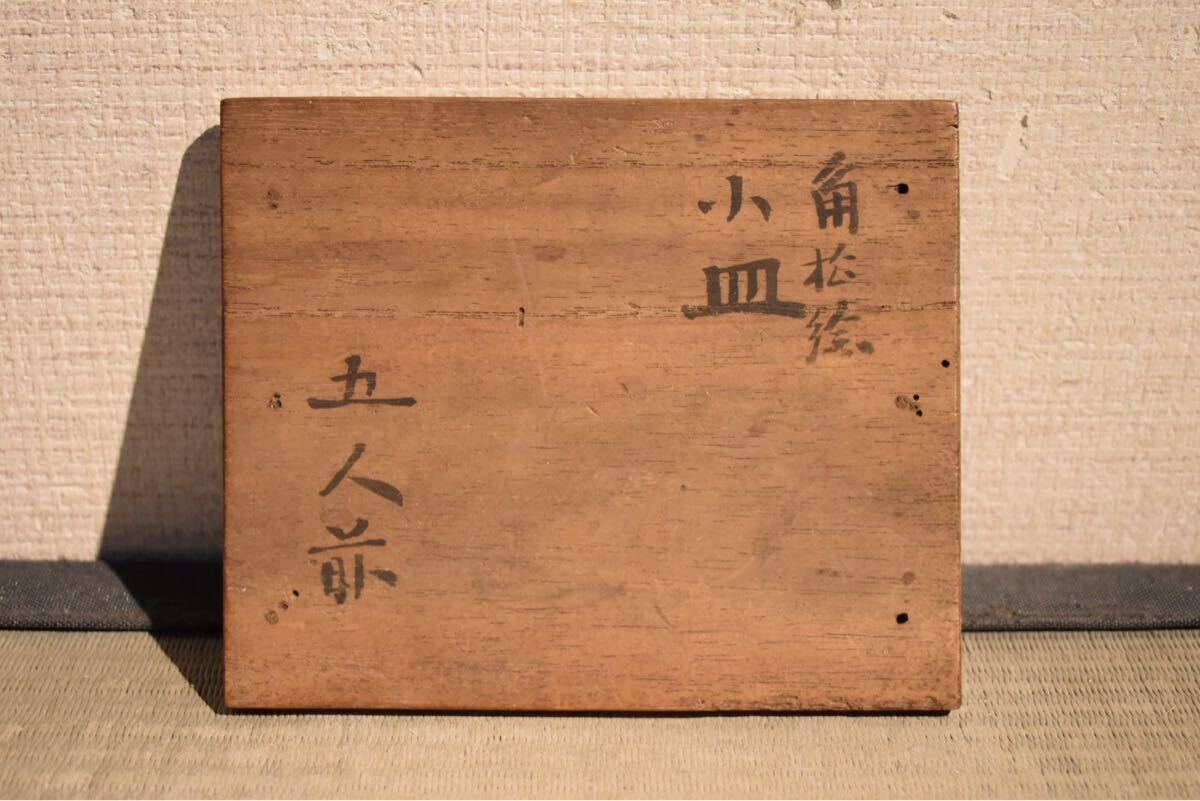 角松絵
小皿
五人前